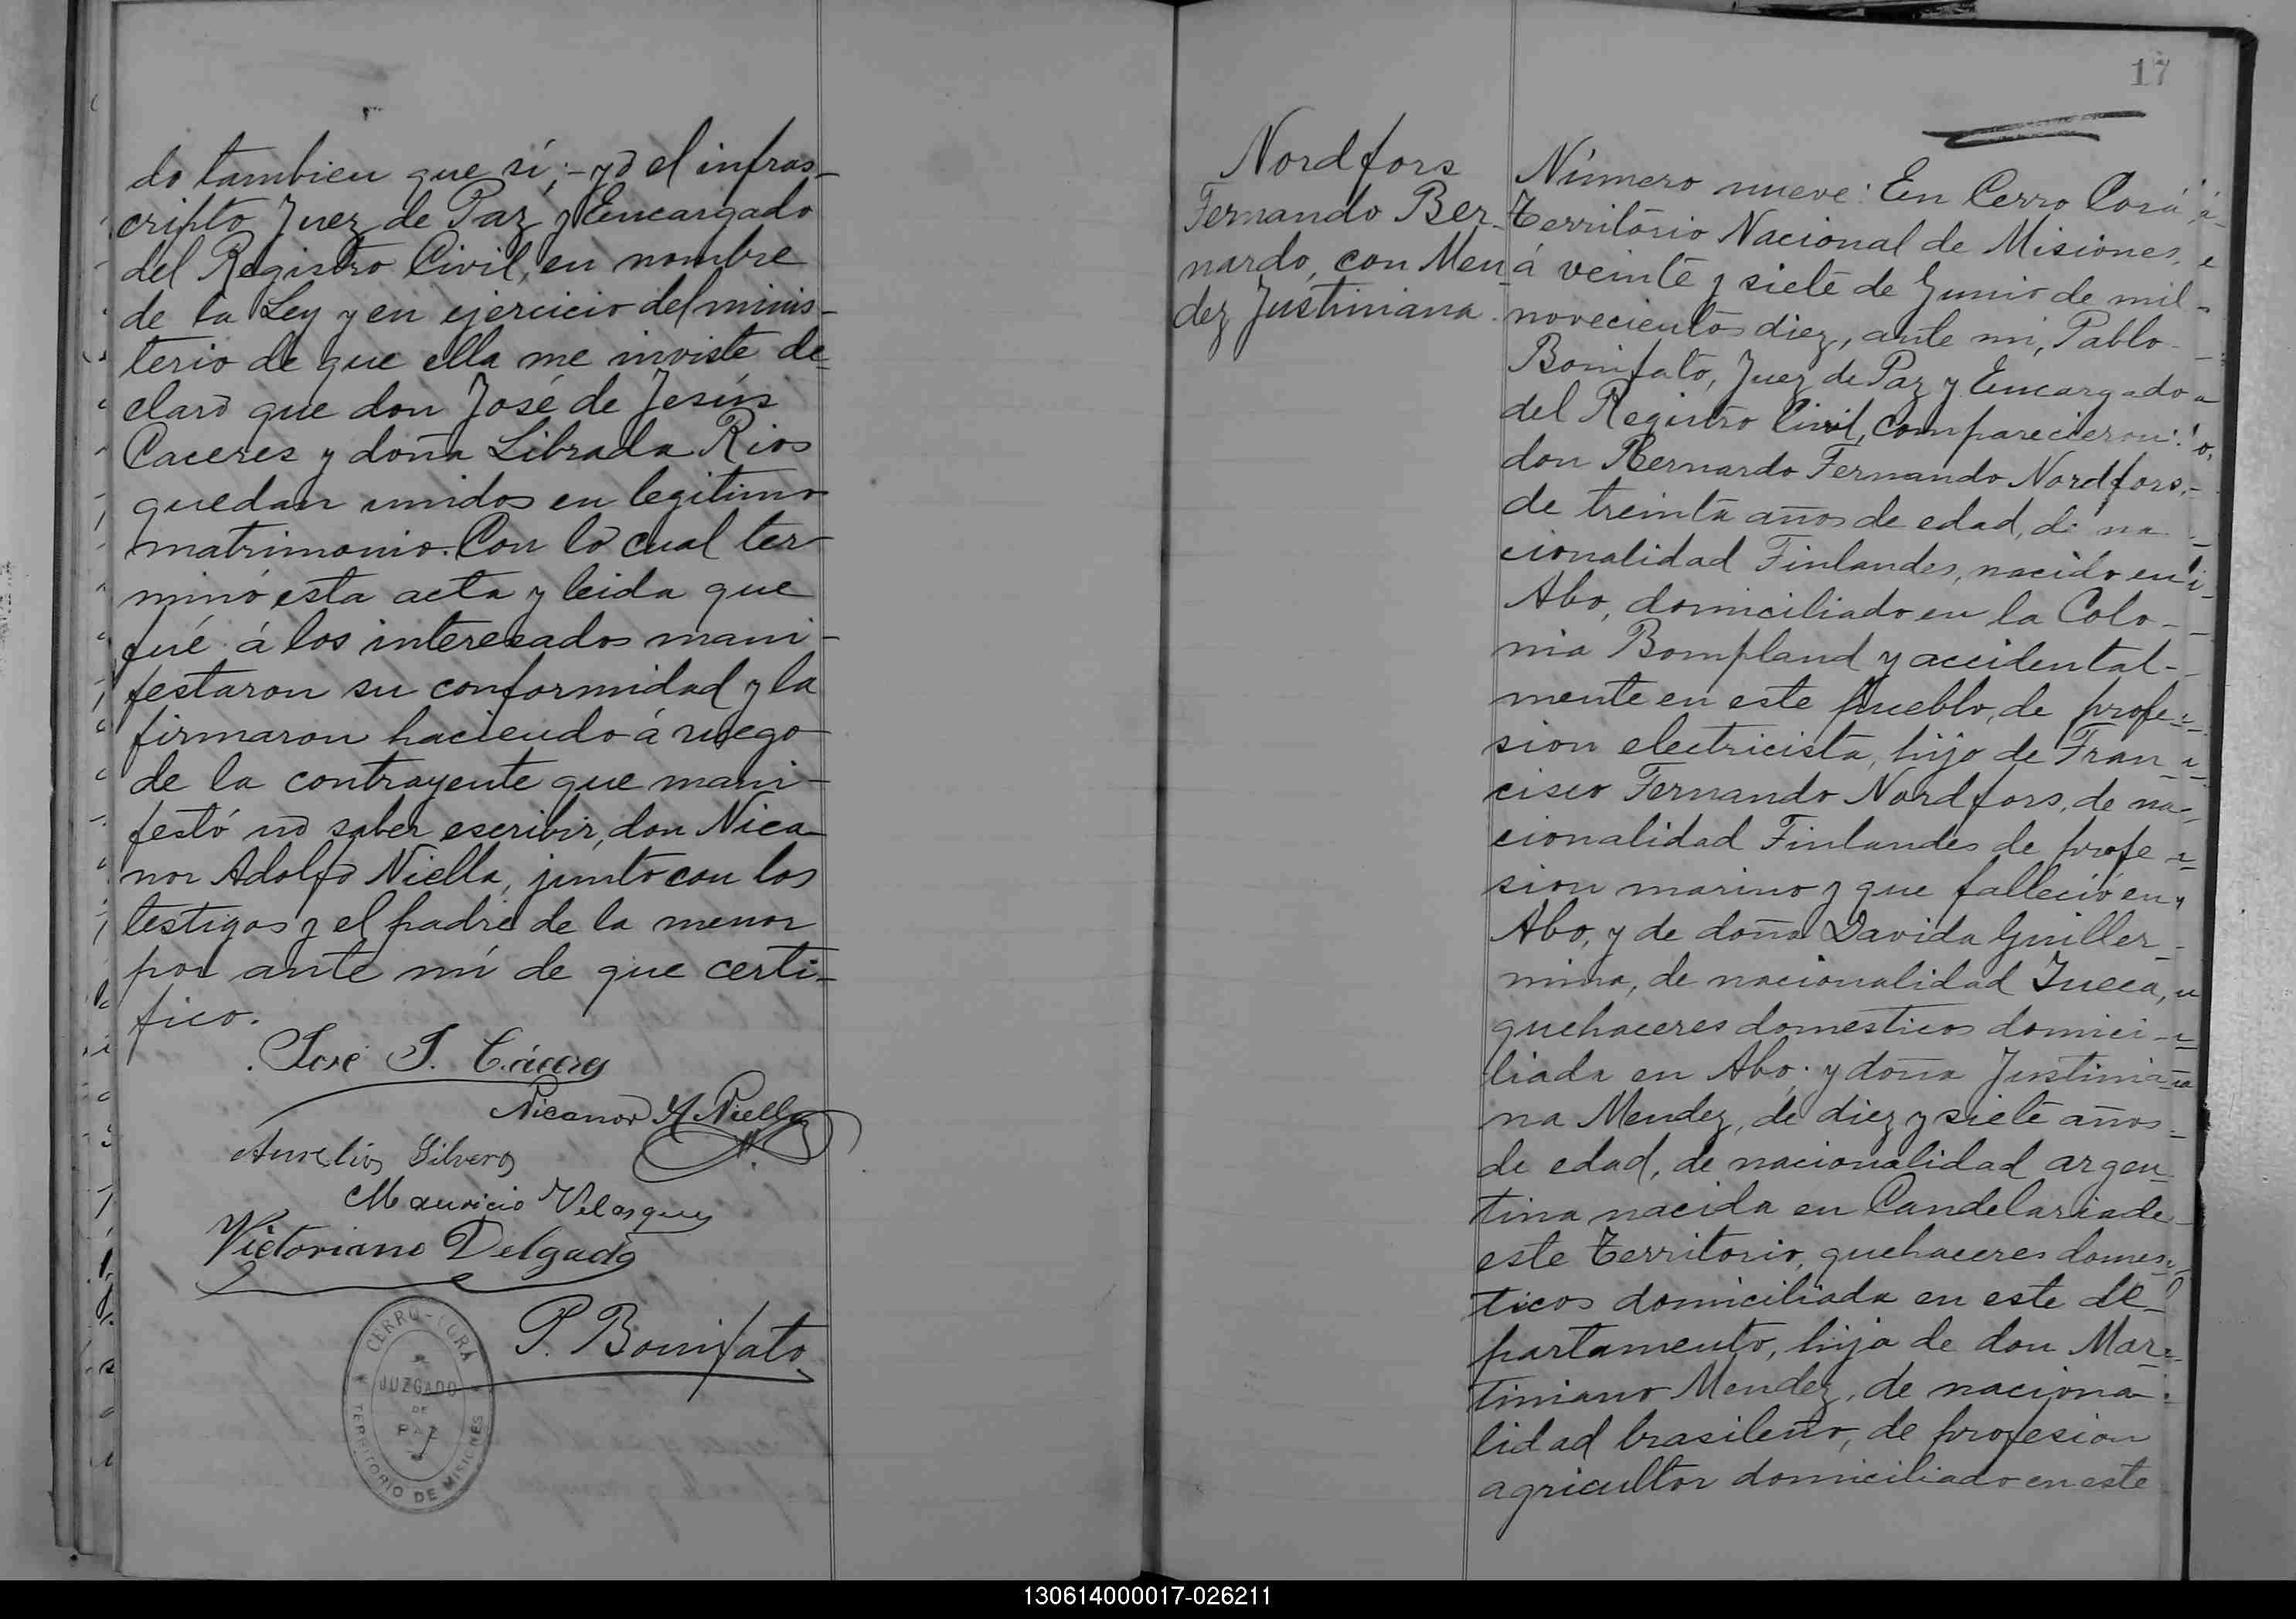 do tambien que sí; - yo el infras-
cripto Juez de Paz y Encargado
del Registro Civil, en nombre
de la Ley y en ejercicio del minis-
terio de que ella me inviste de-
claro que don José de Jesús
Caceres y doña Librada Rios
quedan unidos en legitimo
matrimonio. Con lo cual ter-
minó esta acta y leida que
fué á los interesados mani-
festaron su conformidad y la
firmaron haciendo á ruego
de la contrayente que mani-
festó no saber escribir, don Nica-
nor Adolfo Niella, junto con los
testigos y el padre de la menor
por ante mí de que certi-
fico.
José J. Cáceres
Nicanor A. Niella
Aurelio Silvero
Mauricio Velasquez
Victoriano Delgado
P. Bonifato
CERRO-CORÁ
JUZGADO
DE
PAZ
TERRITORIO DE MISIONES
17
Nordfors
Fernando Ber-
nardo, con Men-
dez Justiniana.
Número nueve: En Cerro Corá
Territorio Nacional de Misiones,
á veinte y siete de Junio de mil
novecientos diez, ante mi, Pablo
Bonifato, Juez de Paz y Encargado
del Registro Civil, comparecieron:
don Bernardo Fernando Nordfors,
de treinta años de edad, de na-
cionalidad Finlandes, nacido en
Abo, domiciliado en la Colo-
nia Bompland y accidental-
mente en este pueblo, de profe-
sion electricista, hijo de Fran-
cisco Fernando Nordfors, de na-
cionalidad Finlandes de profe-
sion marino y que falleció en
Abo, y de doña Davida Guiller-
mina, de nacionalidad Sueca,
quehaceres domesticos domici-
liada en Abo; y doña Justinia-
na Mendez, de diez y siete años
de edad, de nacionalidad argen-
tina nacida en Candelaria de
este Territorio, quehaceres domes-
ticos domiciliada en este de-
partamento, hija de don Mar-
tiniano Mendez, de naciona-
lidad brasileño, de profesion
agricultor domiciliado en este
130614000017-026211